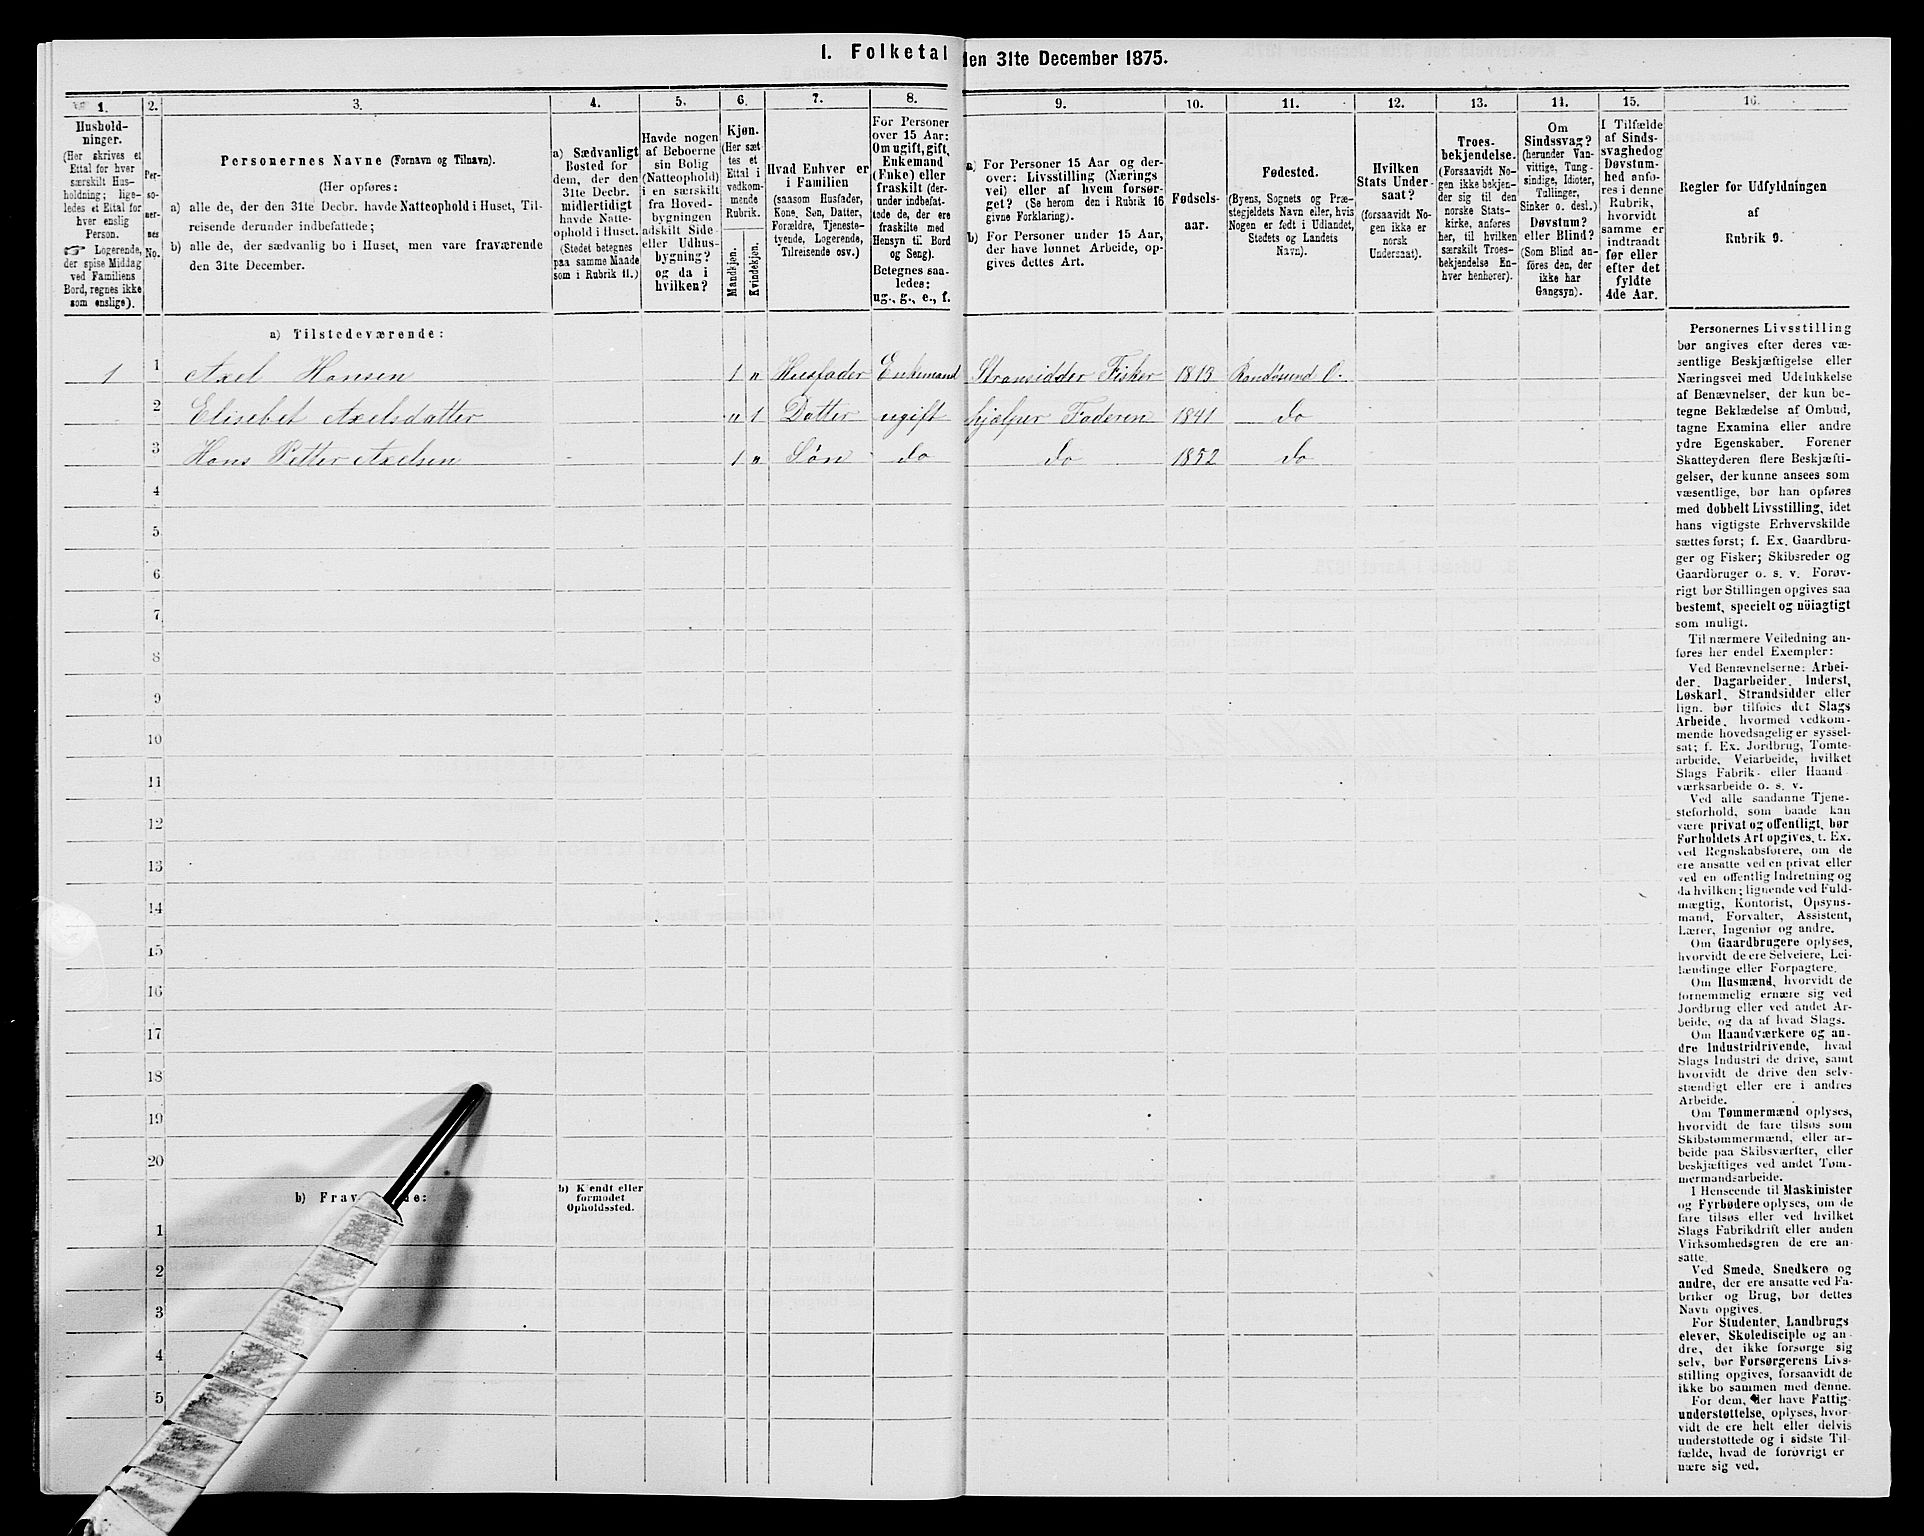 1. Folketal den 31te December 1875.
1. 2. 3. 4. 5. 6. 7. 8. 9. 10. 11. 12. 13. 14. 15. 16.
Hushold-
ninger.
(Her skrives et
Ettal for hver
særskilt Hus-
holdning; lige-
ledes et Ettal for
hver enslig
Person.
☞ Logerende,
der spise Middag
ved Familiens
Bord, regnes ikke
som enslige).
Per-
so-
ner-
nes
No.
Personernes Navne (Fornavn og Tilnavn).
(Her opføres:
a) alle de, der den 31te Decbr. havde Natteophold i Huset, Til-
reisende derunder indbefattede;
b) alle de, der sædvanlig bo i Huset, men vare fraværende
den 31te December.
a) Sædvanligt
Bosted for
dem, der den
31te Decbr.
midlertidigt
havde Natte-
ophold i Huset.
(Stedet betegnes
paa samme Maade
som i Rubrik 11.)
Havde nogen
af Beboerne
sin Bolig
(Natteophold)
i en særskilt
fra Hoved-
bygningen
adskilt Side-
eller Udhus-
bygning?
og da i
hvilken?
Kjøn.
(Her sæt-
tes et
Ettal i
vedkom-
mende
Rubrik.
Mandkjøn.
Kvindekjøn.
Hvad Enhver er
i Familien
(saasom Husfader,
Kone, Søn, Datter,
Forældre, Tjeneste-
tyende, Logerende,
Tilreisende osv.)
For Personer
over 15 Aar:
Om ugift, gift,
Enkemand
(Enke) eller
fraskilt (der-
under indbefat-
tede de, der ere
fraskilte med
Hensyn til Bord
og Seng).
Betegnes saa-
ledes:
ug., g., e., f.
a) For Personer 15 Aar og der-
over: Livsstilling (Nærings
vei) eller af hvem forsør-
get? (Se herom den i Rubrik 16
givne Forklaring).
b) For Personer under 15 Aar,
der have lønnet Arbeide, op-
gives dettes Art.
Fødsels-
aar.
Fødested.
(Byens, Sognets og Præ-
stegjeldets Navn eller, hvis
Nogen er født i Udlandet,
Stedets og Landets
Navn).
Hvilken
Stats Under-
saat?
(forsaavidt No-
gen ikke er
norsk
Undersaat).
Troes-
bekjendelse.
(Forsaavidt No-
gen ikke bekjen-
der sig til den
norske Stats-
kirke, anføres
her, til hvilken
særskilt Troes-
bekjendelse En-
hver henhører).
Om
Sindssvag?
(herunder Van-
vittige, Tung-
sindige, Idioter,
Tullinger,
Sinker o. desl.)
Døvstum?
eller Blind?
(Som Blind an-
føres den, der
ikke har
Gangsyn).
I Tilfælde
af Sinds-
svaghed og
Døvstum-
hed anfø-
res i denne
Rubrik,
hvorvidt
samme er
indtraadt
før eller
efter det
fyldte
4de Aar.
Regler for Udfyldningen
af
Rubrik 9.
a) Tilstedeværende:
1 1 Axel Hansen 1 „ Husfader Enkemand Stransidder Fisker 1813 Randøsund O.
2 Elisebet Axelsdatter „ 1 Datter ugift hjælper Faderen 1841 do
3 Hans Petter Axelsen 1 „ Søn do do 1852 do
4
5
6
7
8
9
10
11
12
13
14
15
16
17
18
19
20
b) Frav de:
b) Kjendt eller
formodet
Opholdssted.
1
2
3
4
5
Personernes Livsstilling
bør angives efter deres væ-
sentlige Beskjæftigelse eller
Næringsvei med Udelukkelse
af Benævnelser, der kun be-
tegne Beklædelse af Ombud,
tagne Examina eller andre
ydre Egenskaber. Forener
Skatteyderen flere Beskjæfti-
gelser, der kunne ansees som
væsentlige, bør han opføres
med dobbelt Livsstilling, idet
hans vigtigste Erhvervskilde
sættes først; f. Ex. Gaardbru-
ger og Fisker; Skibsreder og
Gaardbruger o. s. v. Forøv-
rigt bør Stillingen opgives saa
bestemt, specielt og nøiagtigt
som muligt.
Til nærmere Veiledning an-
føres her endel Exempler:
Ved Benævnelserne: Arbei-
der, Dagarbeider, Inderst,
Løskarl, Strandsidder eller
lign. bør tilføies det Slags
Arbeide, hvormed vedkom-
mende hovedsagelig er syssel-
sat; f. Ex. Jordbrug, Tomte-
arbeide, Veiarbeide, hvilket
Slags Fabrik- eller Haand-
værksarbeide o. s. v.
Ved alle saadanne Tjene-
steforhold, som baade kan
være privat og offentligt, bør
Forholdets Art opgives, t. Ex.
ved Regnskabsførere, om de
ere ansatte ved en privat eller
ved en offentlig Indretning og
da hvilken; lignende ved Fuld-
mægtig, Kontorist, Opsyns-
mand, Forvalter, Assistent,
Lærer, Ingeniør og andre.
Om Gaardbrugere oplyses,
hvorvidt de ere Selveiere, Lei-
lændinge eller Forpagtere.
Om Husmænd, hvorvidt de
fornemmelig ernære sig ved
Jordbrug eller ved andet Ar-
beide, og da af hvad Slags.
Om Haandværkere og an-
dre Industridrivende, hvad
Slags Industri de drive, samt
hvorvidt de drive den selv-
stændigt eller ere i andres
Arbeide.
Om Tømmermænd oplyses,
hvorvidt de fare tilsøs som
Skibstømmermænd, eller ar-
beide paa Skibsværfter, eller
beskjæftiges ved andet Tøm-
mermandsarbeide.
I Henseende til Maskinister
og Fyrbødere oplyses, om de
fare tilsøs eller ved hvilket
Slags Fabrikdrift eller anden
Virksomhedsgren de ere an-
satte.
Ved Smede, Snedkere og
andre, der ere ansatte ved Fa-
briker og Brug, bør dettes
Navn opgives.
For Studenter, Landbrugs-
elever, Skoledisciple og an-
dre, det ikke forsørge sig
selv, bør Forsørgerens Livs-
stilling opgives, forsaavidt de
ikke bo sammen med denne.
For dem, der have Fattig-
understøttelse, oplyses, hvor-
vidt de ere helt eller delvis
understøttede og i sidste Til-
fælde, hvad de forøvrigt er-
nære sig ved.